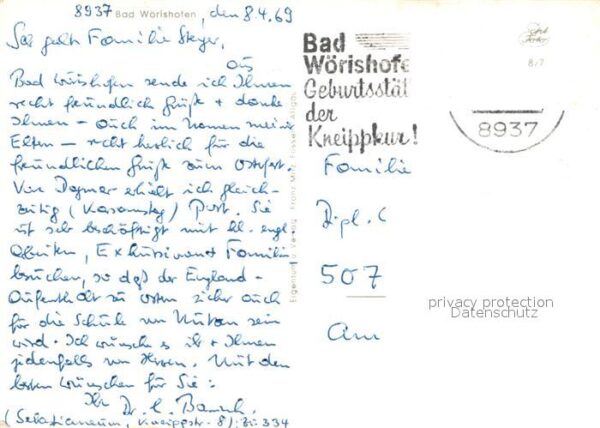 8937 Bad Wörishofen, den 8.4.69
Sehr geehrte Familie Steyer,
Aus
Bad Wörishofen sende ich Ihnen
recht freundliche Grüße + danke
Ihnen – auch im Namen meiner
Eltern – recht herzlich für die
freundlichen Grüße zum Osterfest.
Von Dagmar erhielt ich gleich-
zeitig (Karsamstag) Post. Sie
ist sehr beschäftigt mit engl.
Arbeiten, Exkursion und Familien-
besuchen, so daß der England-
Aufenthalt zu Ostern sicher auch
für die Schule von Nutzen sein
wird. Ich wünsche es ihr + Ihnen
jedenfalls von Herzen. Mit den
besten Wünschen für Sie:
Ihr Dr.
(Sebastianeum, Kneippstr. 8) Zi. 334
Eigentum Verlag Franz Milz
Bad
Wörishofe
Geburtsstät
der
Kneippkur!
8937
Familie
Dipl.
507
Am
privacy protection
Datenschutz